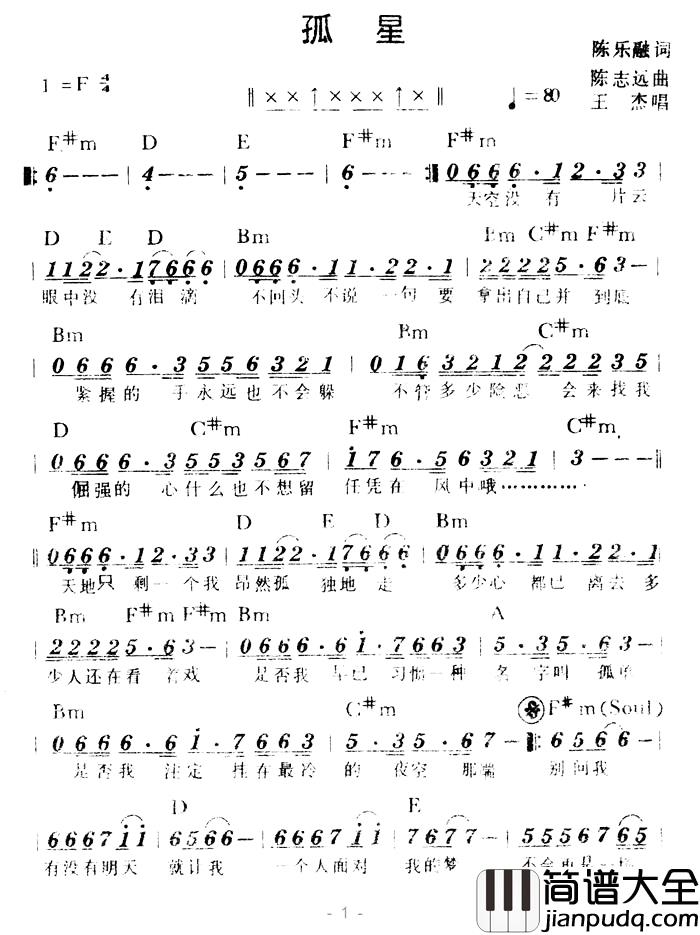 孤 星
陈乐融词
1=F 4/4
陈志远曲
‖××↑×××↑×‖
♩=80
王 杰唱
F#m D E F#m F#m
‖: 6--- | 4--- | 5--- | 6--- :‖ 0666·12·33
天空没 有 片云
D E D Bm Bm C#m F#m
| 1122·17666 | 0666·11·22·1 | 22225·63- |
眼中没 有泪滴 不回头 不说一句要 拿出自己并 到底
Bm Bm C#m
| 0666·3556321 | 016321222235 |
紧握的 手永远也不会躲 不管多少险恶 会来找我
D C#m F#m C#m
| 0666·3553567 | i76·56321 | 3--- ‖
倔强的 心什么也不想留 任凭在 风中哦…………
F#m D E D Bm
‖ 0666·12·33 | 1122·17666 | 0666·11·22·1
天地只 剩一个我 昂然孤 独地走 多少心 都已 离去多
Bm F#m F#m Bm A
| 22225·63- | 0666·6i·7663 | 5·35·63 |
少人还在看 着戏 是否我 早已 习惯一种 名 字叫 孤单
Bm C#m F#m(Soul)
| 0666·6i·7663 | 5·35·67- :‖ 6566-
是否我 注定 挂在最冷 的 夜空 那端 别问我
D E
| 6667ii | 6566- | 6667ii | 7677- | 5556765 |
有没有明天 就让我 一个人面对 我的梦 不会再是一
- 1 -
简谱大全
jianpudq.com